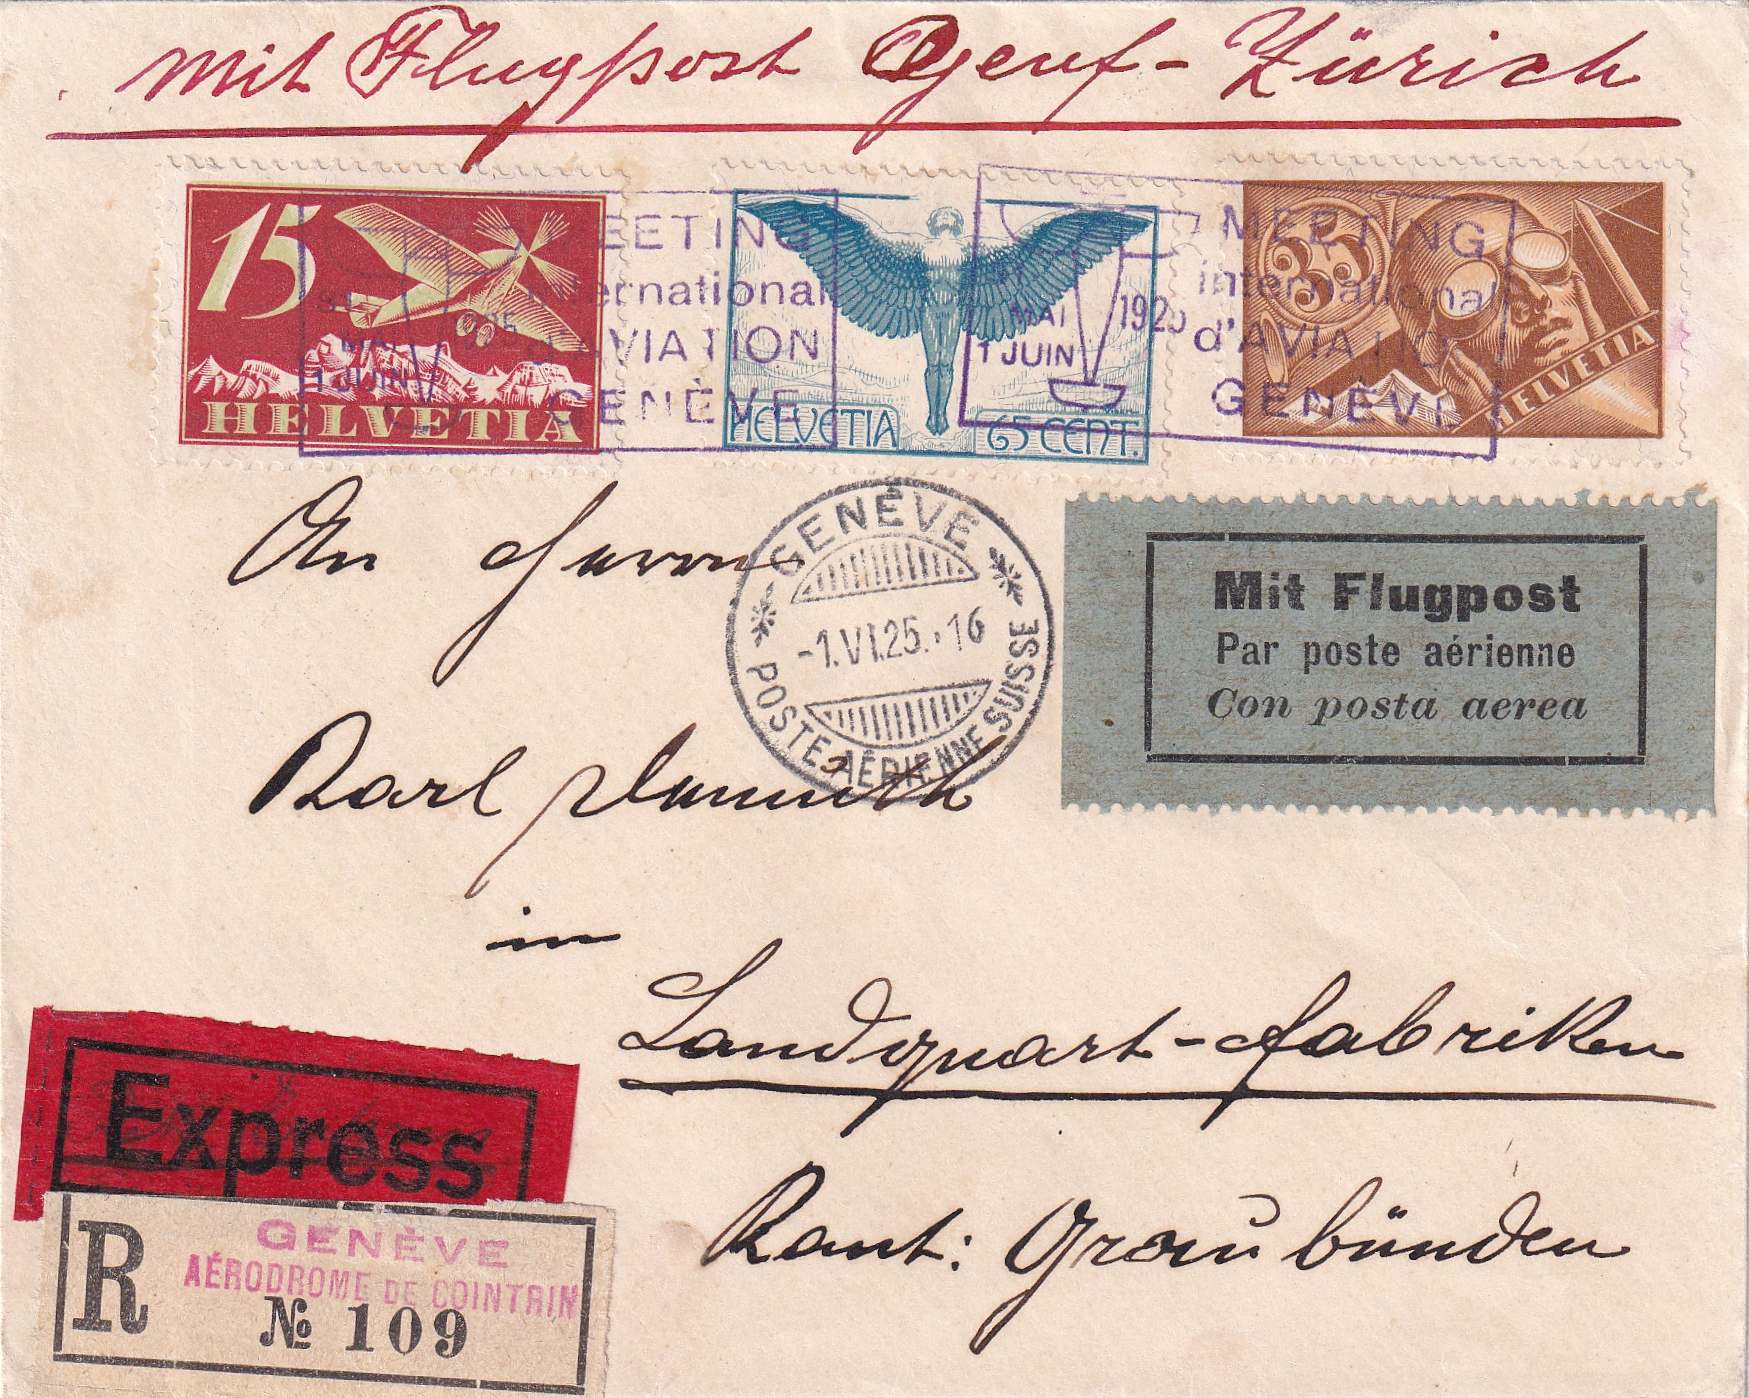 Mit Flugpost Genf - Zürich
15
HELVETIA
31
MAI
1 JUIN
1925
MEETING
international
d'AVIATION
GENÈVE
HELVETIA 65 CENT.
MAI
1 JUIN
1925
MEETING
international
d'AVIATION
GENÈVE
35
HELVETIA
GENÈVE
-1.VI.25.-16
POSTE AÉRIENNE SUISSE
Mit Flugpost
Par poste aérienne
Con posta aerea
An Herrn
Karl
in
Landquart-Fabriken
Kant: Graubünden
Express
R
GENÈVE
AÉRODROME DE COINTRIN
№ 109